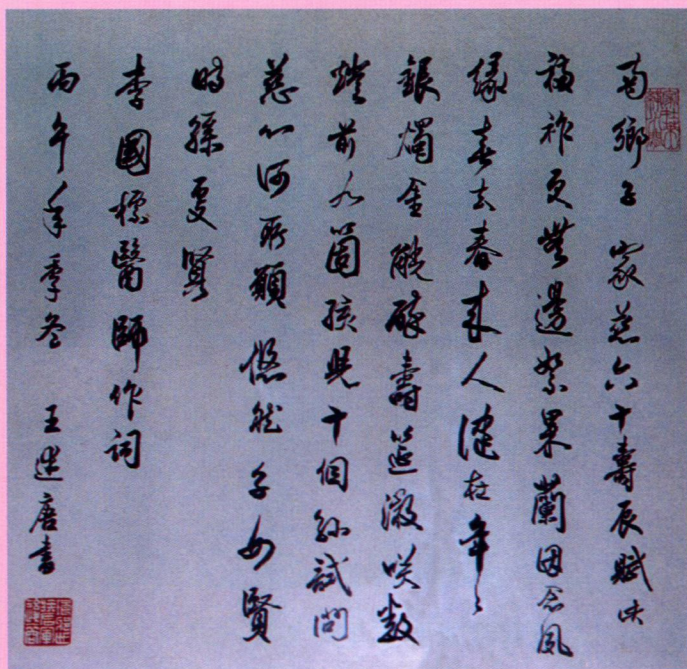 南鄉子 家慈六十壽辰賦此
福祚更無邊絮果蘭因念夙
緣春去春來人健在年〻
銀燭金觥醉壽筵微咲數
燈前九箇孩兒十個孫試問
慈心何所願悠然子女賢
時孫更賢
李國標醫師作詞
丙午年季冬 王唐書